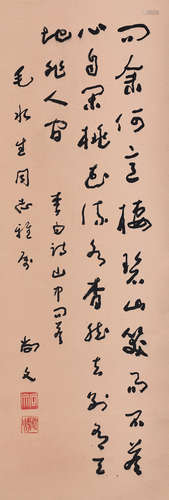 问余何意栖碧山笑而不答
心自闲桃花流水杳然去别有天
地非人间　李白诗山中问答
毛水生同志雅属
尚文